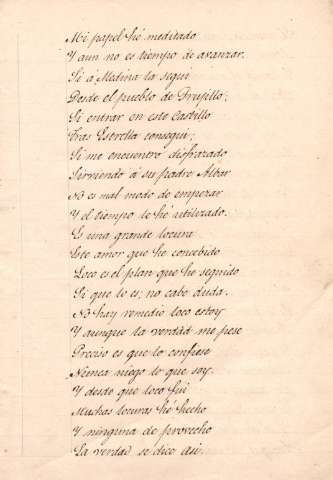 Mi papel hé meditado
Y aun no es tiempo de avanzar.
Si á Medina la segui
Desde el pueblo de Trujillo;
Si entrar en este Castillo
Tras Estrella consegui;
Si me encuentro disfrazado
Sirviendo á su padre Albar
No es mal modo de empezar
Y el tiempo lo hé utilizado.
Es una grande locura
Este amor que he concebido
Loco es el plan que he seguido
Si que lo es; no cabe duda.
No hay remedio loco estoy
Y aunque la verdad me pese
Preciso es que lo confiese
Nunca niego lo que soy.
Y desde que loco fui
Muchas locuras hé hecho
Y ninguna de provecho
La verdad se dice asi.